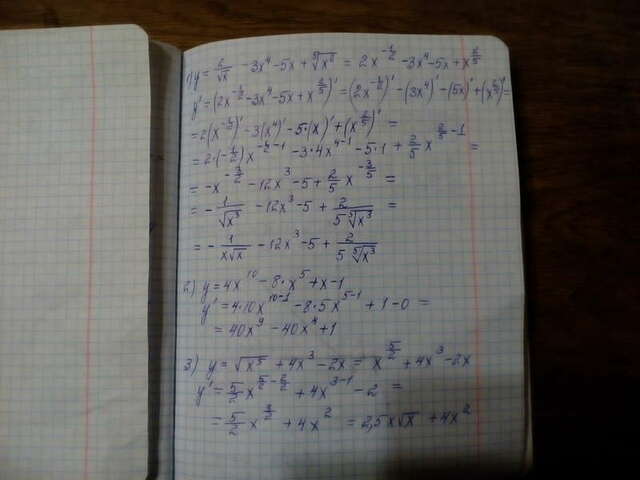 1) y = 2/√x - 3x⁴ - 5x + ⁵√x² = 2x^(-1/2) - 3x⁴ - 5x + x^(2/5)
y' = (2x^(-1/2) - 3x⁴ - 5x + x^(2/5))' = (2x^(-1/2))' - (3x⁴)' - (5x)' + (x^(2/5))' =
= 2(x^(-1/2))' - 3(x⁴)' - 5·(x)' + (x^(2/5))' =
= 2·(-1/2)x^(-1/2-1) - 3·4x^(4-1) - 5·1 + 2/5 x^(2/5-1) =
= -x^(-3/2) - 12x³ - 5 + 2/5 x^(-3/5) =
= - 1/√x³ - 12x³ - 5 + 2/(5 ⁵√x³) =
= - 1/(x√x) - 12x³ - 5 + 2/(5 ⁵√x³)
2) y = 4x¹⁰ - 8·x⁵ + x - 1
y' = 4·10x^(10-1) - 8·5x^(5-1) + 1 - 0 =
= 40x⁹ - 40x⁴ + 1
3) y = √x⁵ + 4x³ - 2x = x^(5/2) + 4x³ - 2x
y' = 5/2 x^(5/2-2/2) + 4x^(3-1) - 2 =
= 5/2 x^(3/2) + 4x² = 2,5x√x + 4x²